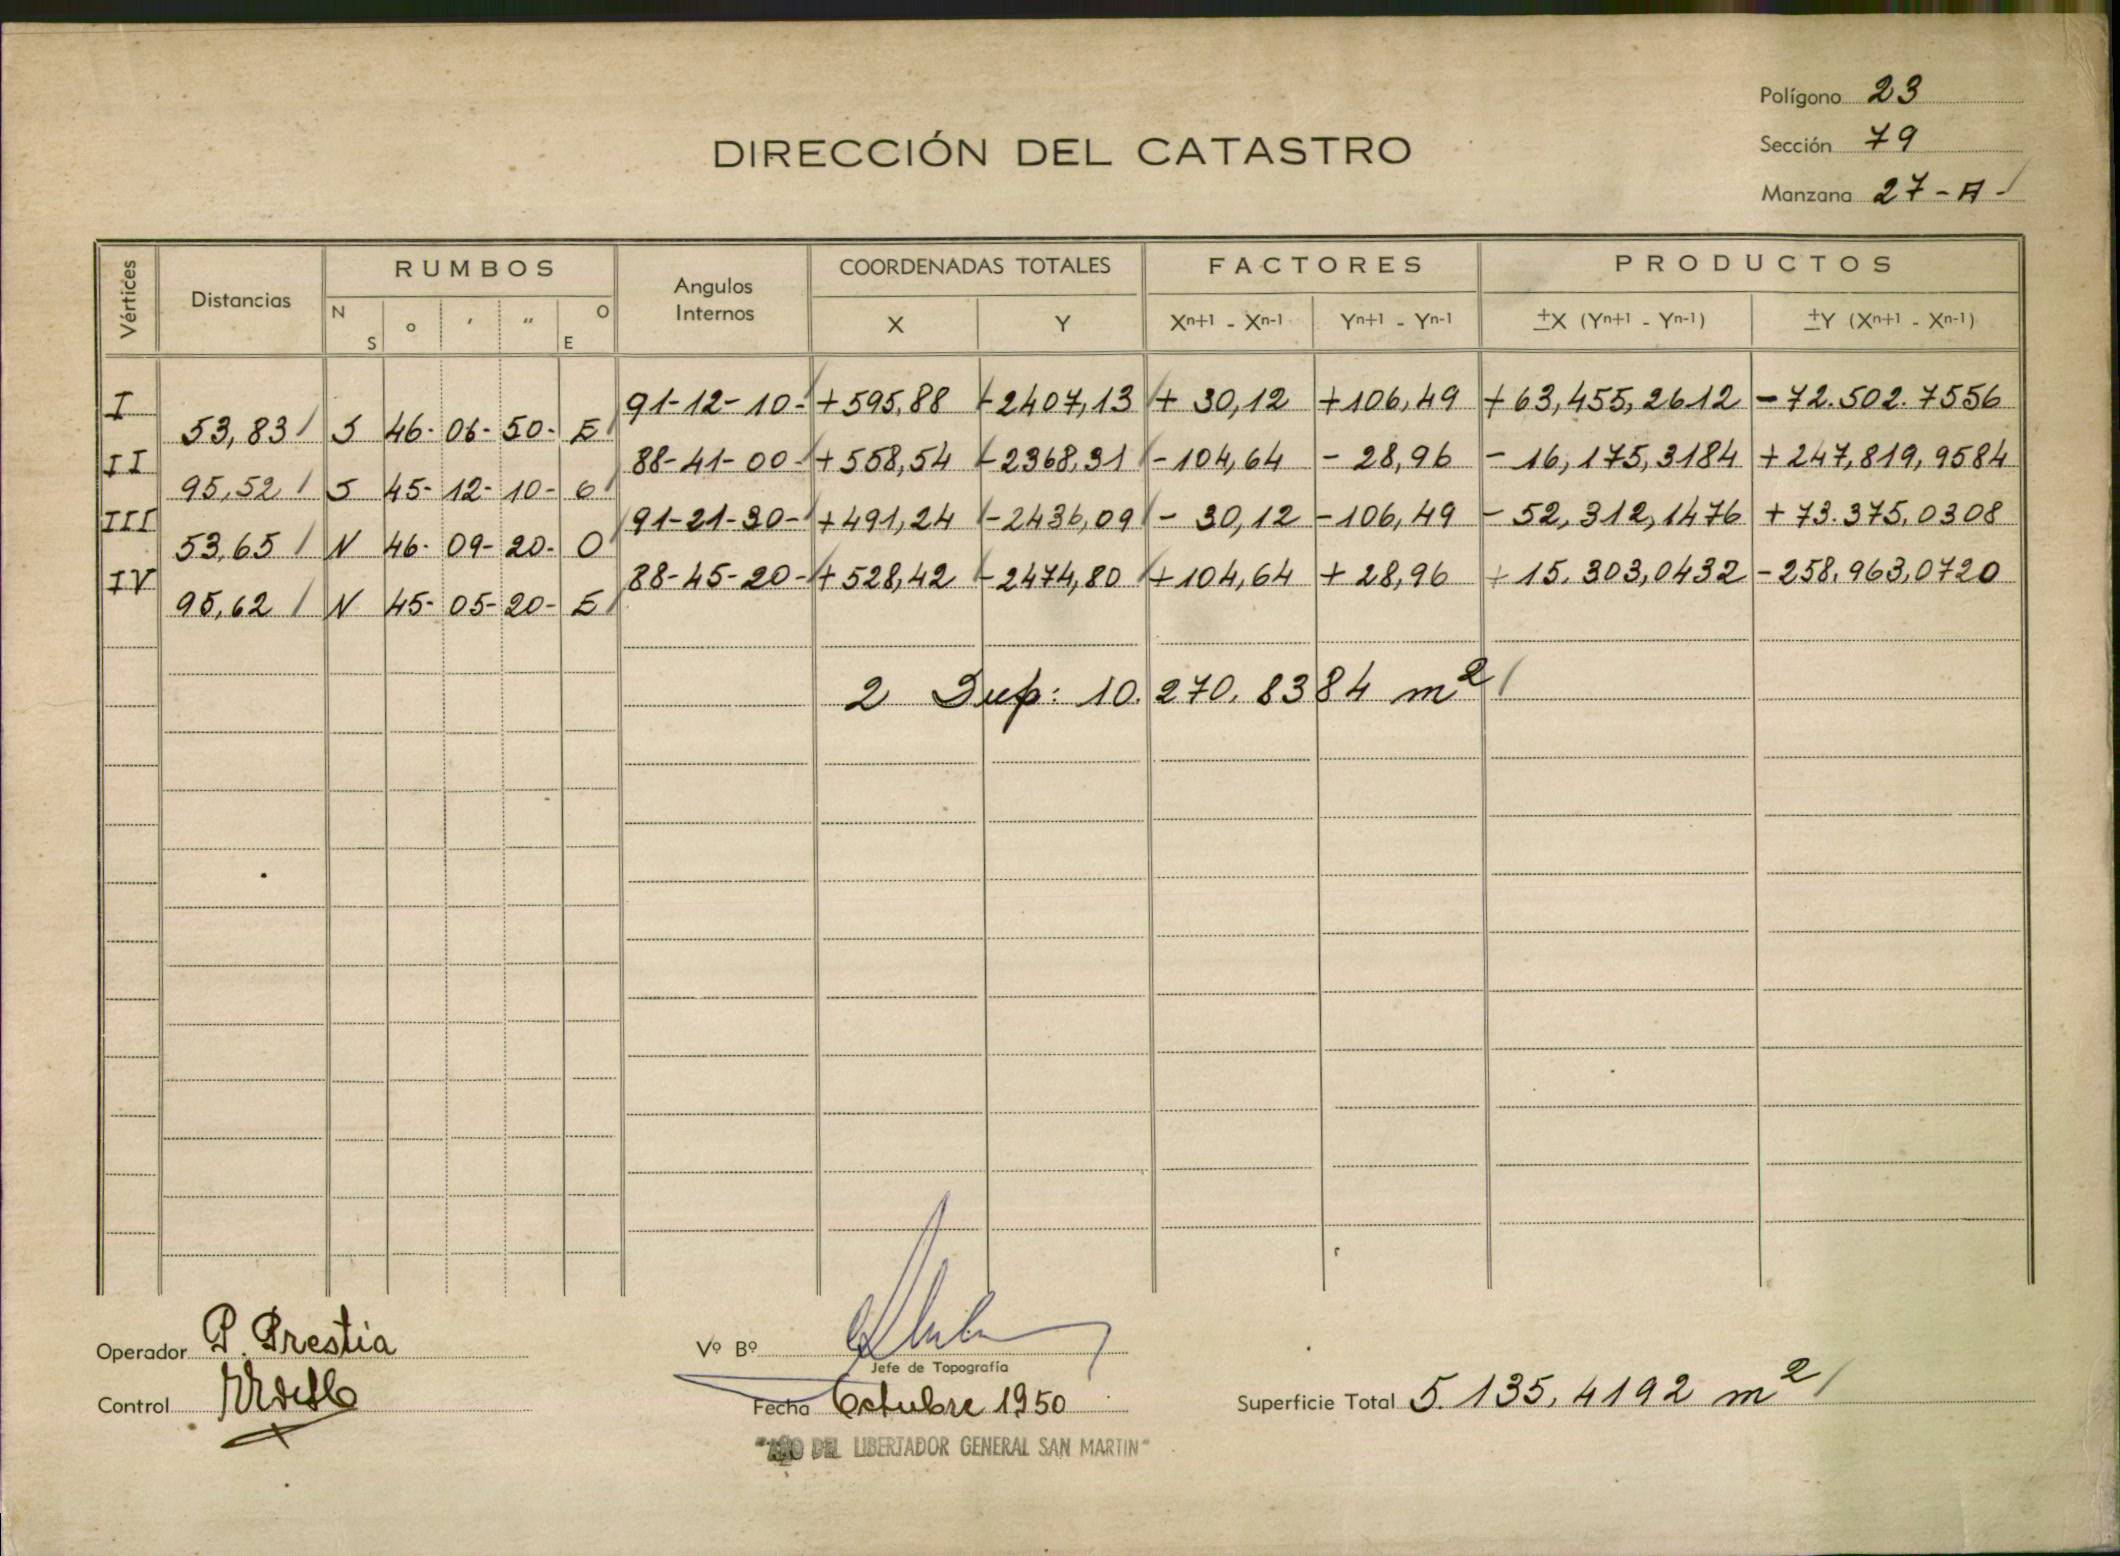 Polígono 23
DIRECCIÓN DEL CATASTRO
Sección 79
Manzana 27-A-
Vértices Distancias RUMBOS Angulos Internos COORDENADAS TOTALES FACTORES PRODUCTOS
N S ° ' " O E X Y Xn+1 - Xn-1 Yn+1 - Yn-1 ±X (Yn+1 - Yn-1) ±Y (Xn+1 - Xn-1)
I 91-12-10- +595,88 -2407,13 + 30,12 +106,49 +63,455,2612 -72.502.7556
53,83 S 46- 06- 50- E
II 88-41-00- +558,54 -2368,31 -104,64 - 28,96 - 16,175,3184 +247,819,9584
95,52 S 45- 12- 10- O
III 91-21-30- +491,24 -2436,09 - 30,12 -106,49 - 52,312,1476 +73.375,0308
53,65 N 46- 09- 20- O
IV 88-45-20- +528,42 -2474,80 +104,64 +28,96 +15.303,0432 -258.963,0720
95,62 N 45- 05- 20- E
2 Sup: 10.270.8384 m2
Operador P. Prestia
Vº Bº
Jefe de Topografía
Control
Fecha Octubre 1950
Superficie Total 5.135,4192 m2
"AÑO DEL LIBERTADOR GENERAL SAN MARTIN"